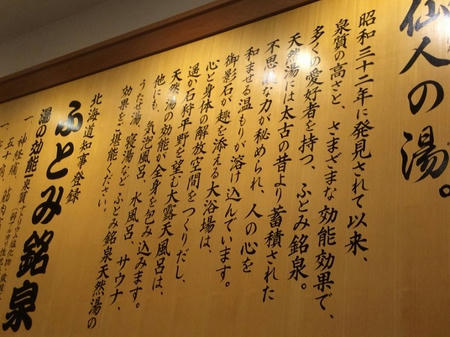 仙人の湯。
昭和三十二年に発見されて以来、
泉質の高さと、さまざまな効能効果で、
多くの愛好者を持つ、ふとみ銘泉。
天然湯には太古の昔より蓄積された
不思議な力が秘められ、人の心を
和ませる温もりが溶け込んでいます。
御影石が趣を添える大浴場は、
心と身体の解放空間をつくりだし、
遥か石狩平野を望む大露天風呂は、
天然湯の効能が全身を包み込みます。
他にも、気泡風呂、水風呂、サウナ、
うたせ湯、寝湯など、ふとみ銘泉天然湯の
効果をご堪能ください。
北海道知事登録
ふとみ銘泉
湯の効能 泉質
一、神経痛、
一、五十肩、